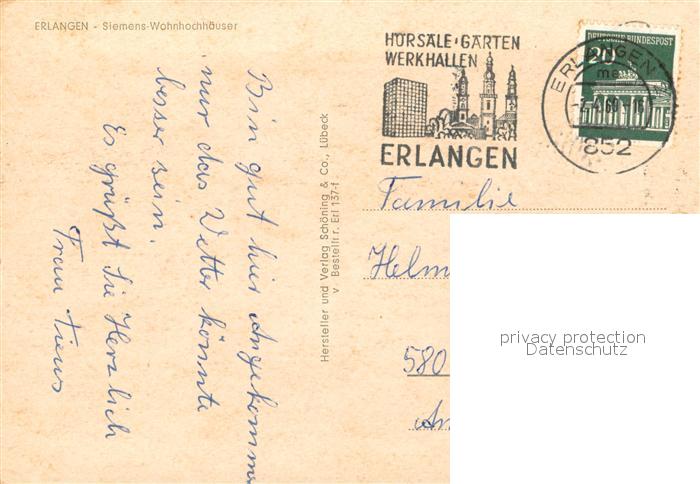 ERLANGEN - Siemens-Wohnhochhäuser
Bin gut hier angekommen
nur das Wetter könnte
besser sein.
Es grüßt Sie Herzlich
Frau
Hersteller und Verlag Schöning & Co., Lübeck
v. Bestellnr. Erl 137-f
HÖRSÄLE·GÄRTEN
WERKHALLEN
ERLANGEN
ERLANGEN
852
DEUTSCHE BUNDESPOST
20
Familie
Helm
580
privacy protection
Datenschutz